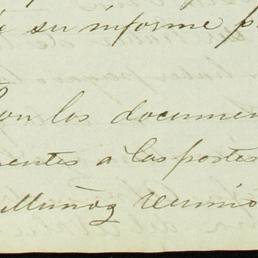 su informe p
Con los documen
rentes a las partes
Muñoz reunio